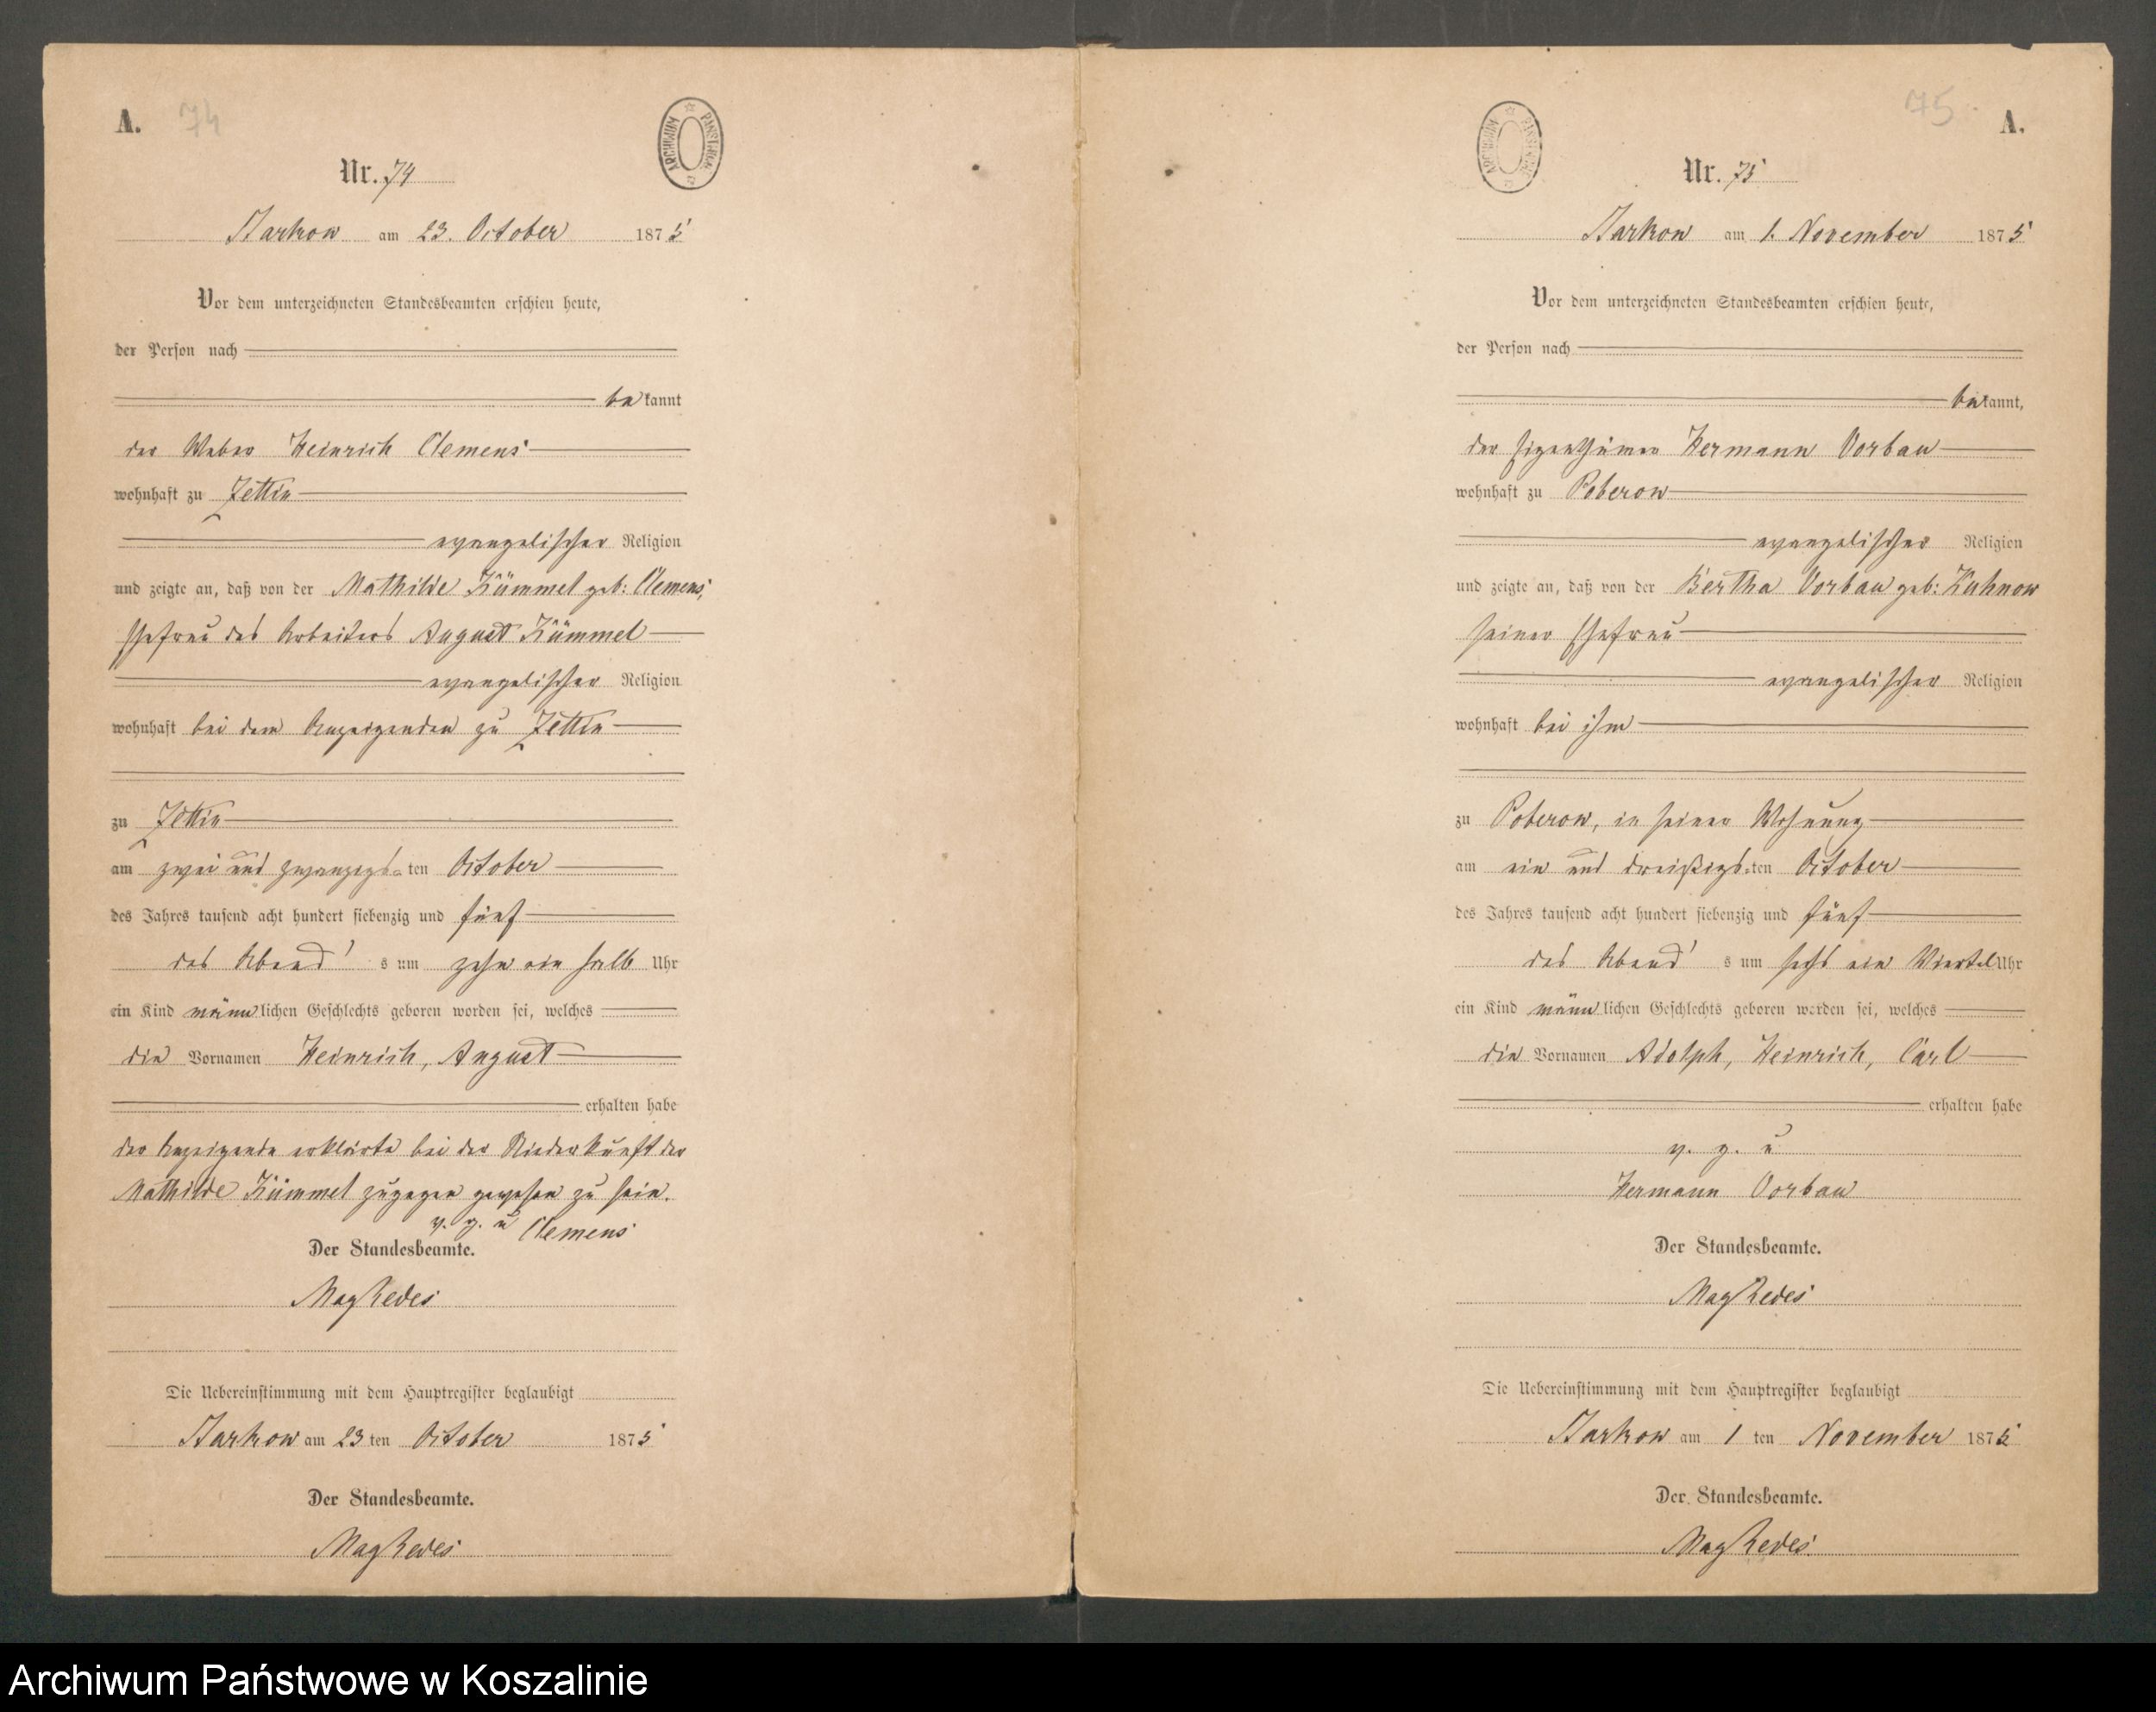 A. 74
ARCHIWUM PAŃSTWOW
Nr. 74
Barkow am 23. October 1875
Vor dem unterzeichneten Standesbeamten erschien heute,
der Person nach
bekannt
der Weber Heinrich Clemens
wohnhaft zu Zettin
evangelischer Religion
und zeigte an, daß von der Mathilde Kümmel geb: Clemens,
Ehefrau des Arbeiters August Kümmel
evangelischer Religion
wohnhaft bei dem Anzeigenden zu Zettin
zu Zettin
am zwei und zwanzigsten October
des Jahres tausend acht hundert siebenzig und fünf
des Abends um zehn ein halb Uhr
ein Kind männlichen Geschlechts geboren worden sei, welches
die Vornamen Heinrich, August
erhalten habe
der Anzeigende erklärte bei der Niederkunft der
Mathilde Kümmel zugegen gewesen zu sein.
v. g. u Clemens
Der Standesbeamte.
Die Uebereinstimmung mit dem Hauptregister beglaubigt
Barkow am 23ten October 1875
Der Standesbeamte.
75 A.
Nr. 75
Barkow am 1. November 1875
Vor dem unterzeichneten Standesbeamten erschien heute,
der Person nach
bekannt,
der Eigenthümer Hermann Vorbau
wohnhaft zu Poberow
evangelischer Religion
und zeigte an, daß von der Bertha Vorbau geb: Kuhnow
seiner Ehefrau
evangelischer Religion
wohnhaft bei ihm
zu Poberow, in seiner Wohnung
am ein und dreißigsten October
des Jahres tausend acht hundert siebenzig und fünf
des Abends um sechs ein Viertel Uhr
ein Kind männlichen Geschlechts geboren worden sei, welches
die Vornamen Adolph, Heinrich, Carl
erhalten habe
v. g. u
Hermann Vorbau
Der Standesbeamte.
Die Uebereinstimmung mit dem Hauptregister beglaubigt
Barkow am 1 ten November 1875
Der Standesbeamte.
Archiwum Państwowe w Koszalinie